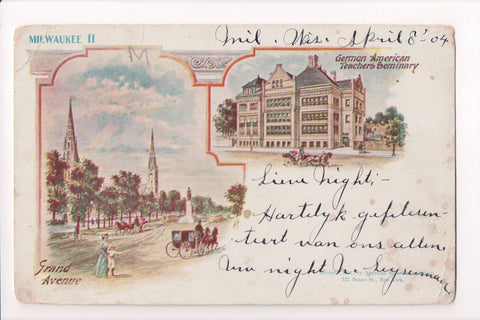 MILWAUKEE 11
Mil. Wis. April 8' 04
M
German American
Teachers Seminary
Lieve Night;-
Hartelyk gefelisen-
teert van ons allen
Grand
Avenue
127 Duane St., New York.